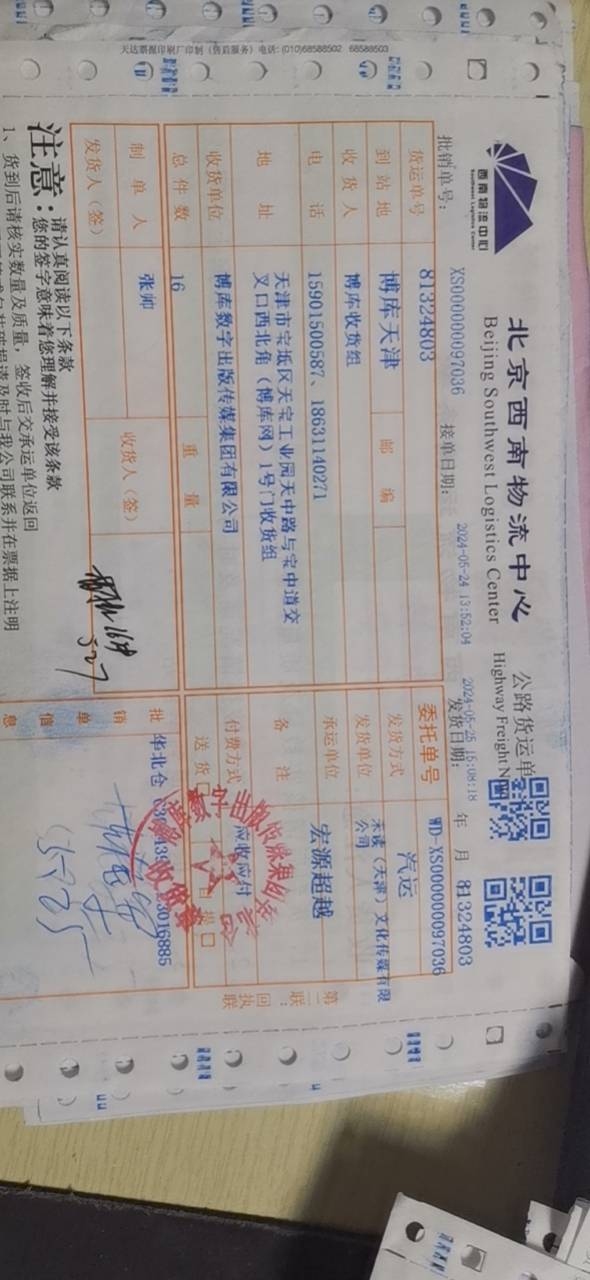 天达票据印刷厂印制 (售后服务) 电话: (010)68588502 68588503
西南物流中心
Southwest Logistics Center
北京西南物流中心
Beijing Southwest Logistics Center
公路货运单
Highway Freight N
批销单号: XS000000097036 接单日期: 2024-05-24 13:52:04 发货日期: 2024-05-25 15:08:18 年 月
81324803
货运单号 81324803 委托单号 WD-XS000000097036
到站地 博库天津 邮编 发货方式 汽运
收货人 博库收货组 发货单位 未读（天津）文化传媒有限公司
电话 15901500587、18631140271 承运单位 宏源超越
地址 天津市宝坻区天宝工业园天中路与宝中道交
叉口西北角（博库网）1号门收货组
备注
收货单位 博库数字出版传媒集团有限公司 付费方式 应收应付
总件数 16 重量 送货 自提
制单人 张帅 收货人（签）
批销单信息 华北仓
发货人（签）
16件
5.27
收货章
第二联：回执联
注意:
请认真阅读以下条款
您的签字意味着您理解并接受该条款
1、货到后请核实数量及质量，签收后交承运单位返回